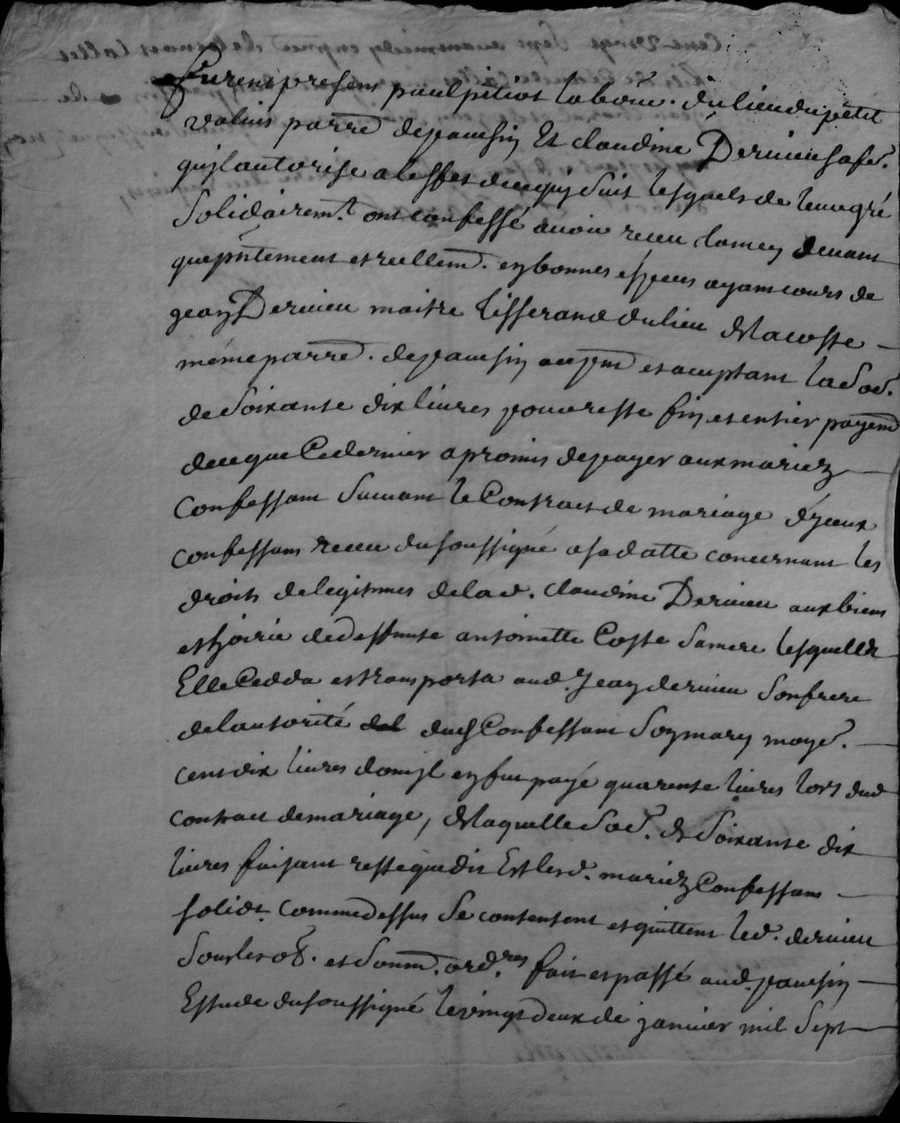 furent presens paul petiot labour. du lieu du petit
valius parre. depaussin Et claudine Dervieu safe.
quil autorise a leffet dece quy suit lesquels de leur gré
Solidairemt. ont confessé avoir receu clamen devant
que pntement et reellem. en bonnes especes ayant cours de
jean Dervieu maitre tisserand du lieu de la coste
meme parre. depaussin acy pnt et aceptant la Sod.
de Soixante dix livres pour reste fin et entier payem
de ce que Ce dernier a promis de payer aux mariez
Confessant Suivant le Contract de mariage d'yceux
confessans receu du soussigné a sa datte concernant les
droits de legitimes delad. claudine Dervieu aux biens
et hoirie de deffunte antoinette Coste Sa mere lesquelles
Elle Cedda et transporta aud. Jean dervieu Son frere
de l'autorité dud Confessant Son mary moye.
cent dix livres dont il en fut payé quarente livres lors dud
contract de mariage, de laquelle Sod. de Soixante dix
livres faisant reste que dit Est lesd. mariez Confessans
solidt. Comme dessus Se contentent et quittent led. dervieu
Sous les ob. et Soum. ord.res fait et passé aud. paussin
Estude du soussigné le vingt deux de janvier mil Sept